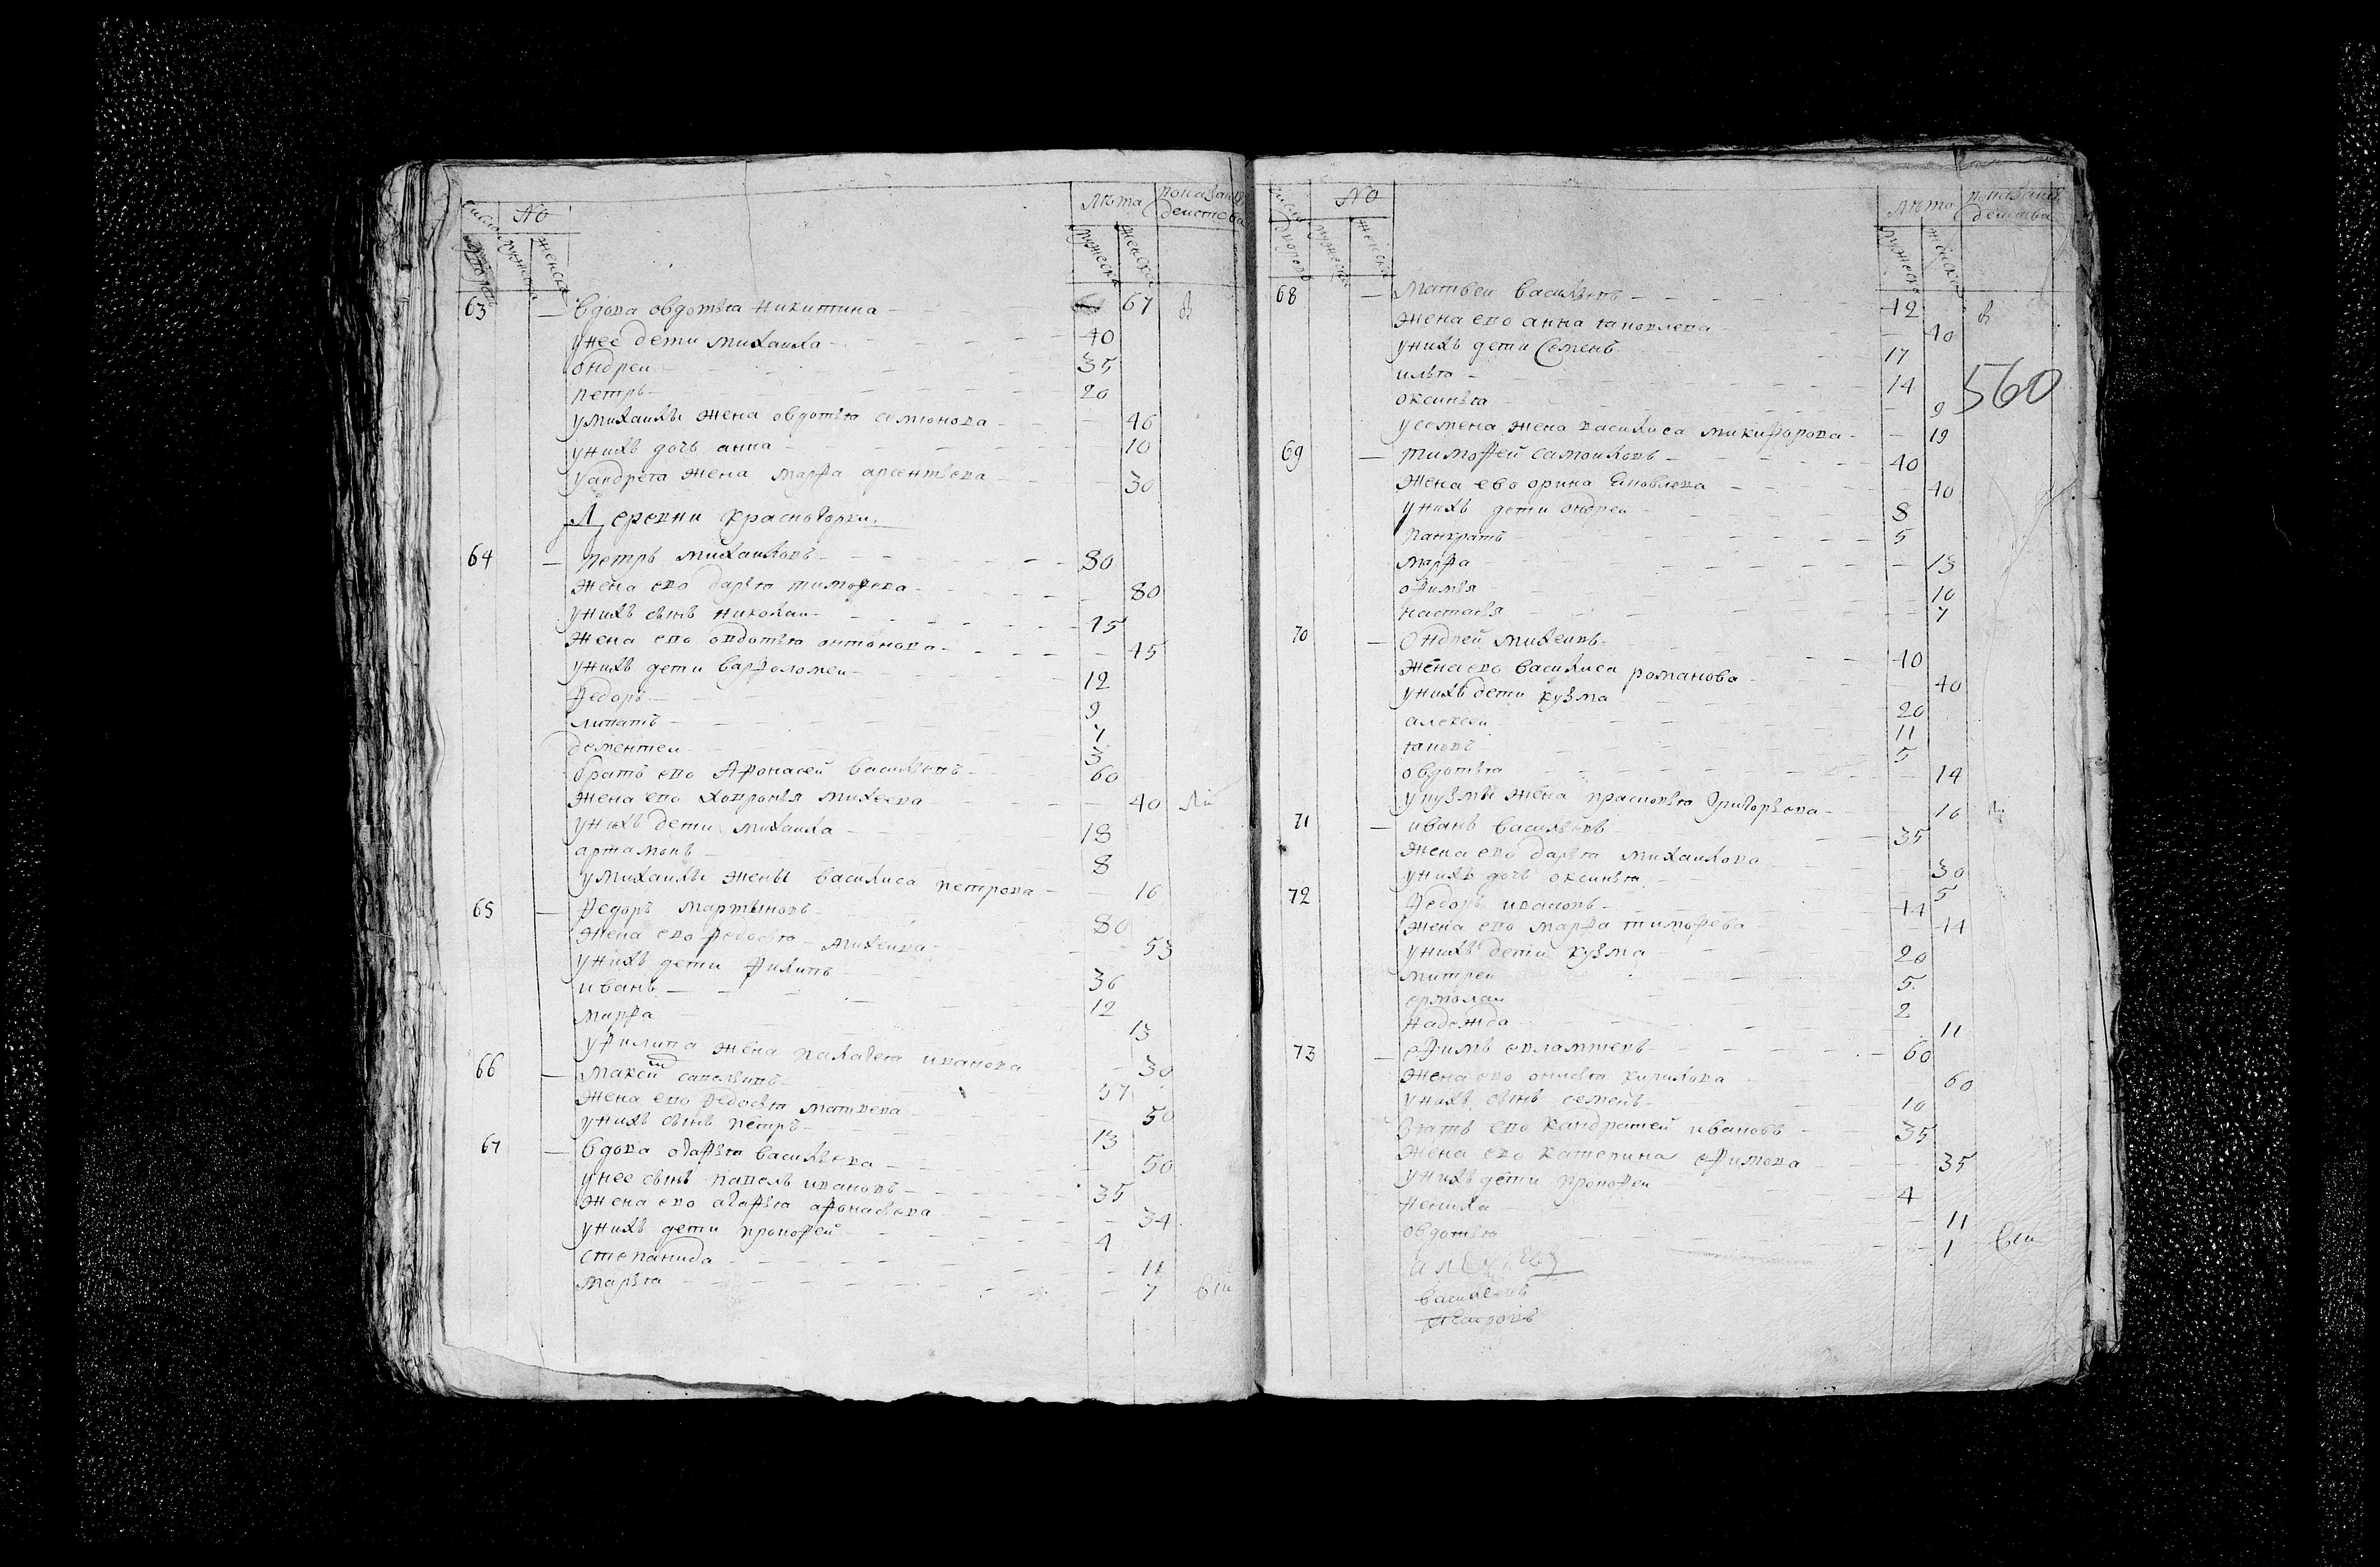 число дворовъ № мужеска женска лѣта мужеска женска показание действа
63 — Вдова овдотья никитина — 67 в
унее дети михаила — 40
ондреи — 35
петръ — 20
умихаилы жена овдотья семионова — 46
унихъ дочь анна — 10
уандрея жена марфа арсентьева — 30
Деревни Красногорки
64 — петръ михаиловъ — 80
жена ево дарья тимофева — 80
унихъ сынъ николаи — 45
жена ево овдотья антонова — 45
унихъ дети варфоломеи — 12
федоръ — 9
липатъ — 7
дементеи — 3
братъ ево Афонасей васильевъ — 60
жена ево ховронья михеева — 40
унихъ дети михаила — 18
артамонъ — 8
умихаилы жены василиса петрова — 16
65 — федоръ мартыновъ — 80
жена ево федосья михеива — 53
унихъ дети филипъ — 36
иванъ — 12
марфа — 13
уфилипа жена палагея иванова — 30
66 — Макей савельивъ — 57
жена ево федосья матвева — 50
унихъ сынъ петръ — 13
67 — Вдова огафья васильева — 50
унее сынъ павелъ ивановъ — 35
жена ево агафья афонасьева — 34
унихъ дети прокофей — 4
степанида — 11
марья — 7
число дворовъ № мужеска женска лѣта мужеска женска показание действа
560
68 — Матвеи васильевъ — 42 в
жена ево анна яковлева — 40
унихъ дети Семенъ — 17
илья — 14
оксинья — 9
усемена жена василиса микифорова — 19
69 — тимофей самоиловъ — 40
жена ево орина Яковлева — 40
унихъ дети ондреи — 8
панкратъ — 5
марфа — 13
офимья — 10
настасья — 7
70 — Ондрей михеивъ — 40
жена ево василиса романова — 40
унихъ дети кузма — 20
алексеи — 11
яковъ — 5
овдотья — 14
укузмы жена прасковья григорьева — 16
71 — иванъ васильевъ — 35
жена ево дарья михаилова — 30
унихъ дочь оксинья — 5
72 — федоръ ивановъ — 44
жена ево марфа тимофева — 44
унихъ дети кузма — 20
митреи — 5
ермолаи — 2
надежда — 11
73 — ефимъ евлампиевъ — 60
жена ево онисья кирилова — 60
унихъ сынъ семенъ — 10
Зять ево кандратей ивановъ — 35
жена ево катерина ефимова — 35
унихъ дети прокофеи — 4
ненила — 11
овдотья — 1
васильевъ